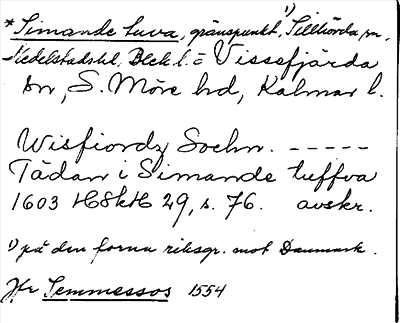 *Simande tuva, gränspunkt, ¹) Tillhörda sn,
Medelstads hd, Blek. l. = Vissefjärda
sn, S. Möre hd, Kalmar l.
Wisfiordz Sochn. -----
Tädan i Simande tuffva
1603 HSkH 29, s. 76. avskr.
¹) på den forna riksgr. mot Danmark.
Jfr Semmessos 1554